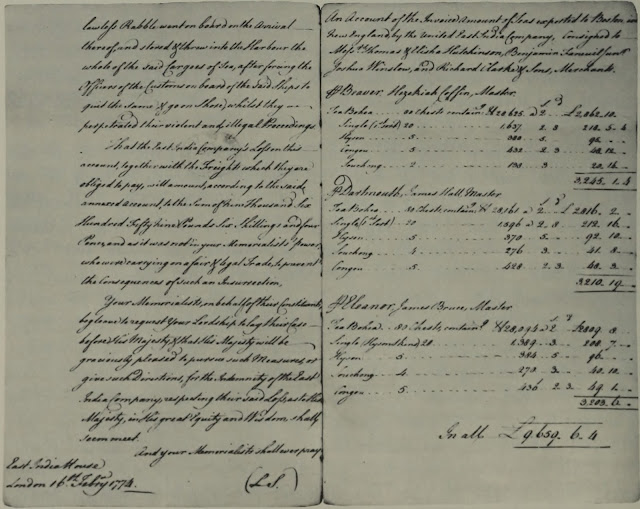 lawless Rabble went on board on the Arrival
thereof, and stove & threw into the Harbour the
whole of the said Cargoes of Tea, after forcing the
Officers of the Customs on board of the said Ships to
quit the same & go on Shore, whilst they
perpetrated their violent and illegal Proceedings
That the East India Company's Loss on this
account, together with the Freight which they are
obliged to pay, will amount, according to the said
annexed account, to the Sum of Nine Thousand Six
Hundred Fifty Nine Pounds Six Shillings and four
Pence, and as it was not in your Memorialists Power,
who were carrying on a fair & legal Trade, to prevent
the Consequences of such an Insurrection,
Your Memorialists, on behalf of their Constituents,
beg leave to request Your Lordship to lay their Case
before His Majesty, & that His Majesty will be
graciously pleased to pursue such Measures, or
give such Directions, for the Indemnity of the East
India Company, respecting their said Loss, as to His
Majesty, in His great Equity and Wisdom, shall
seem meet.
And your Memorialists shall ever pray
East India House
London 16th. Febry. 1774.
(L.S.)
An Account of the Invoice Amount of Teas exported to Boston in
New England, by the United East India Company, Consigned to
Messrs. Thomas & Elisha Hutchinson, Benjamin Faneuil
Joshua Winslow, and Richard Clarke & Sons, Merchants.
Beaver, Hezekiah Coffin, Master.
Tea Bohea 80 Chests contain
Single 20 1,637 2.8 218.5.4
Hyson 5
Congou 5 432 2.3
Souchong 2
3,245.1.4
Dartmouth, James Hall Master
Tea Bohea 80 Chests, contain 2 £2016.2
Single 20 1,596 2.8 212.16
Hyson 5 370 5 92.10
Souchong 4 276 3 41.8
Congou 5 428 2.3 48.3
3210.19
Eleanor, James Bruce, Master
Tea Bohea 80 Chests, contain 2
Single Hyson 20 1,389 3 208.7
Hyson 5 384 5 96
Souchong 4 270 3 40.10
Congou 5 436 2.3 49.1
3,203.6
In all £9,659.6.4